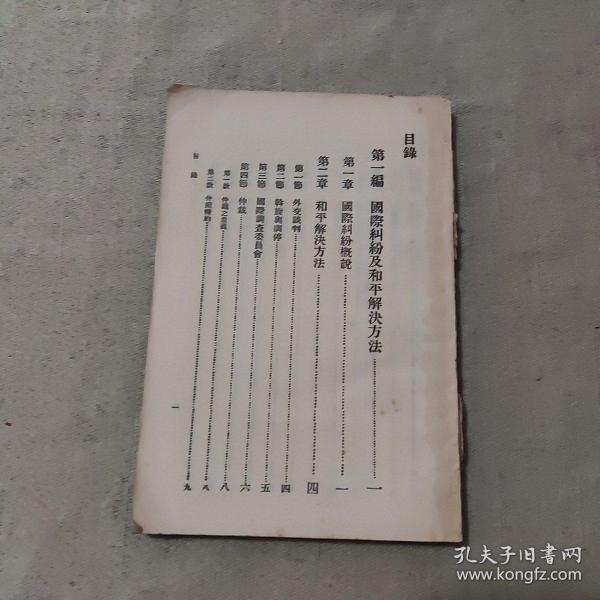 目錄
第一編 國際糾紛及和平解決方法……一
第一章 國際糾紛概說……一
第二章 和平解決方法……四
第一節 外交談判……四
第二節 斡旋與調停……四
第三節 國際調查委員會……五
第四節 仲裁……六
第一款 仲裁之意義……八
第二款 仲裁條約……八
九
目錄
一
孔夫子旧书网
www.kongfz.com